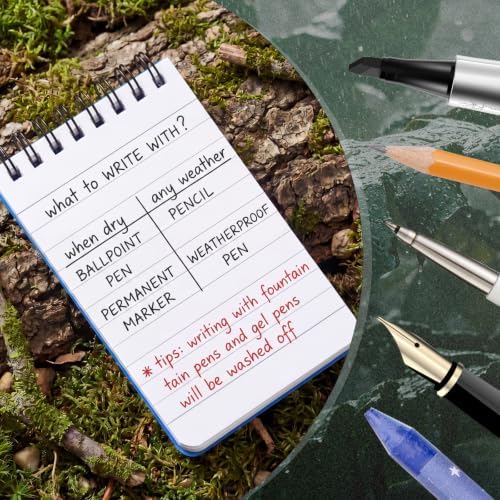 what to WRITE WITH?
when dry any weather
BALLPOINT PENCIL
PEN
PERMANENT WEATHERPROOF
MARKER PEN
* tips: writing with fountain
tain pens and gel pens
will be washed off